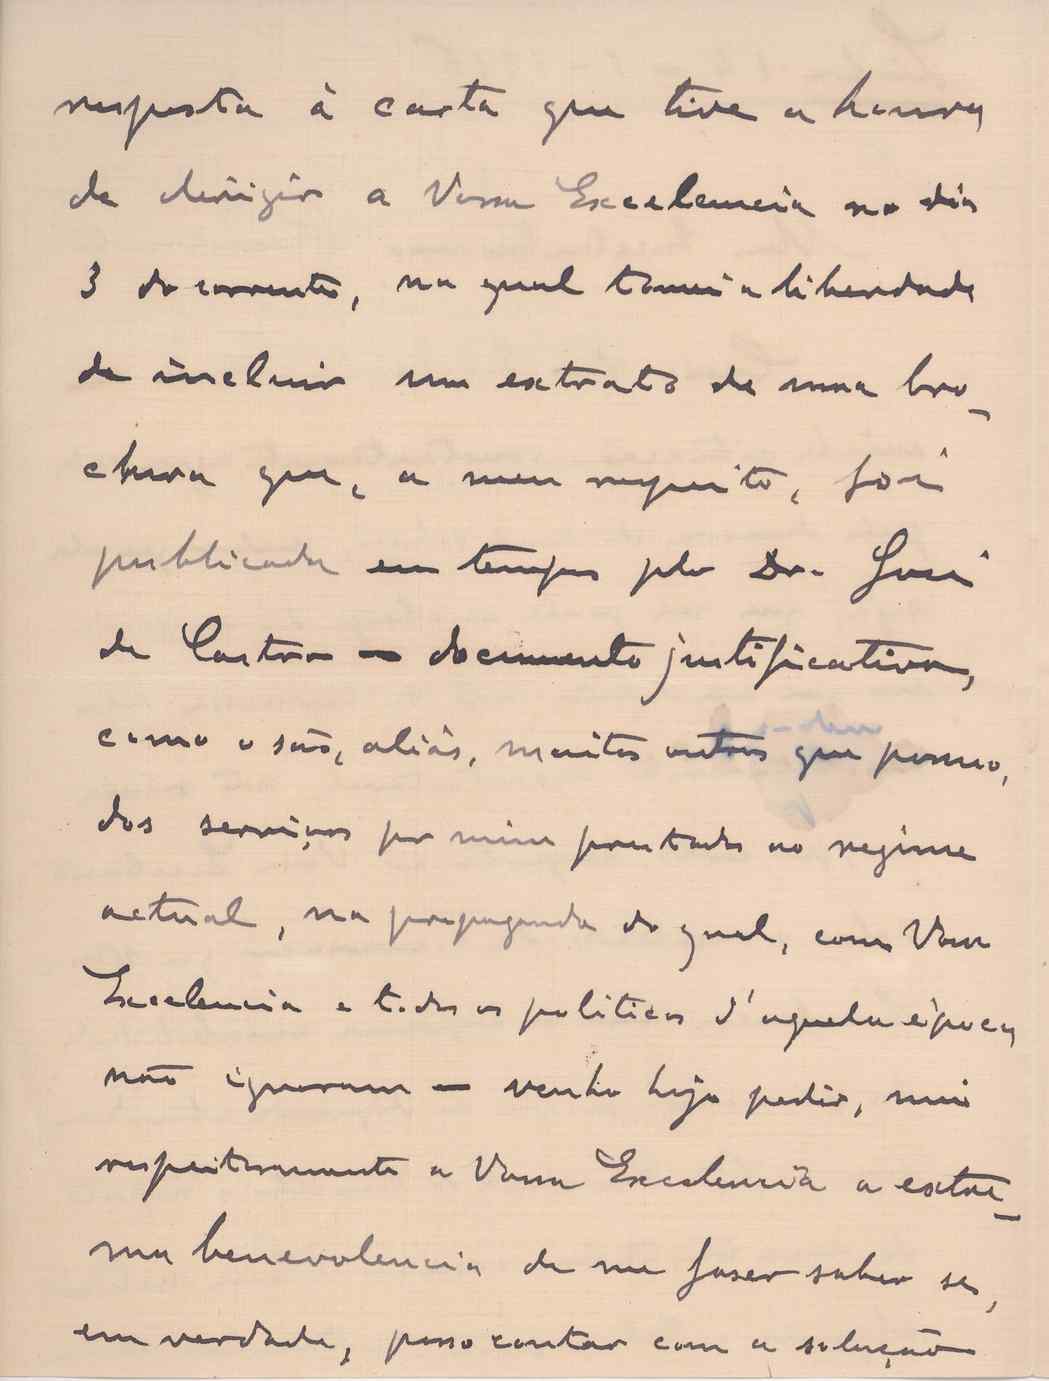 resposta á carta que tive a honra
de dirigir a Vossa Excelencia no dia
3 do corrente, na qual tomei a liberdade
de incluir um extrato de uma bro_
chura que, a meu respeito, foi
publicada em tempos pelo Dr. José
de Castro — documento justificativo,
como o são, aliás, muitos outros que possuo,
dos serviços por mim prestados ao regime
actual, na propaganda do qual, como Vossa
Excelencia e todos os politicos d'aquela época
não ignoram — venho hoje pedir, mui
respeitosamente a Vossa Excelencia a extre_
ma benevolencia de me faser saber se,
em verdade, posso contar com a solução